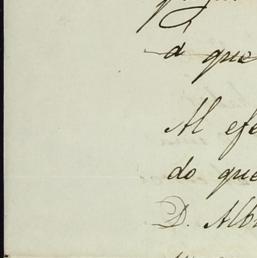 á que
Al efe
do que
D. Alb